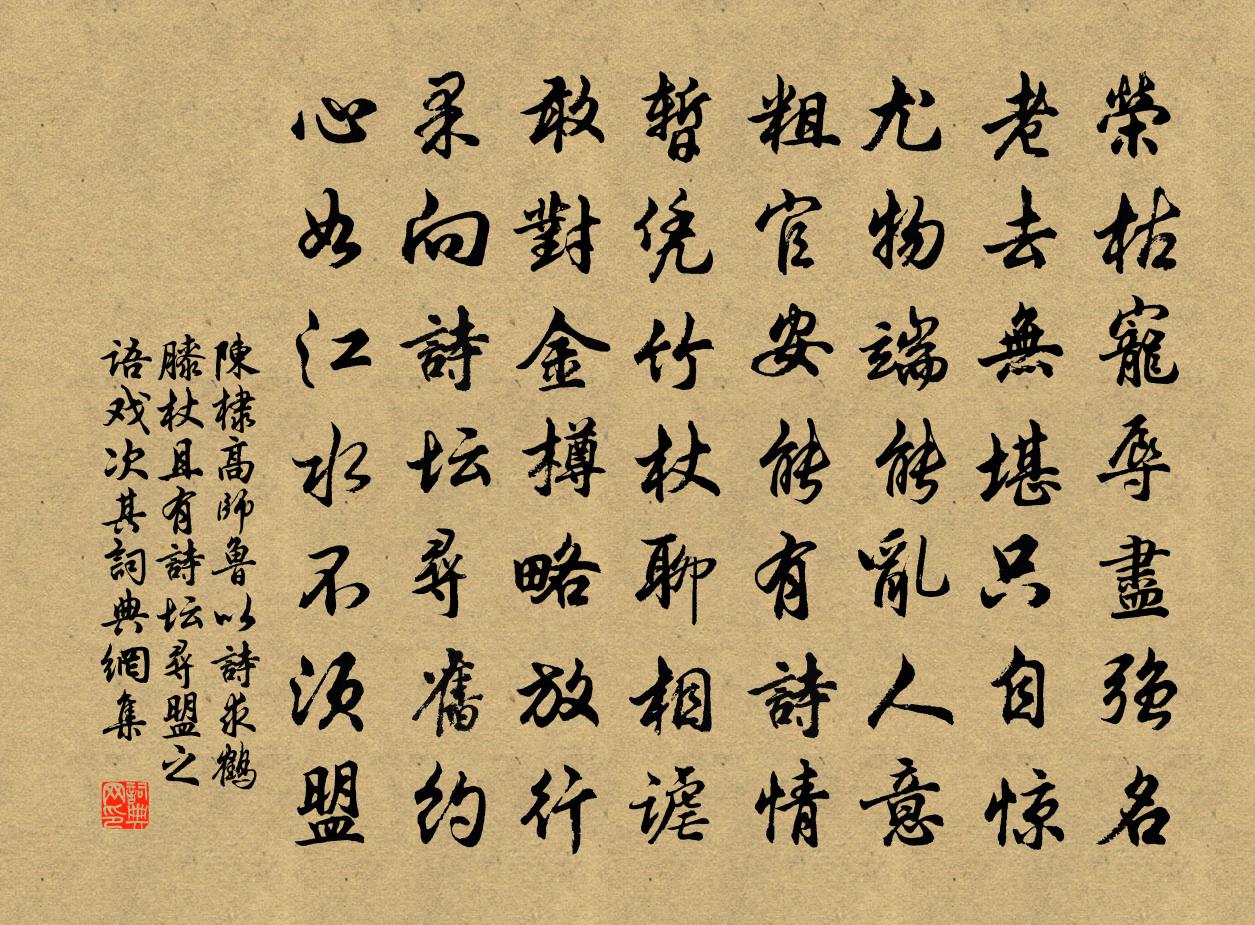 榮枯寵辱盡強名
老去無堪只自惊
尤物端能亂人意
粗官安能有詩情
暫凭竹杖聊相謔
敢對金樽略放行
果向詩坛尋舊約
心如江水不須盟
陳棣高師魯以詩求鶴
膝杖且有詩坛尋盟之
语戏次其詞典網集
詞典
网印